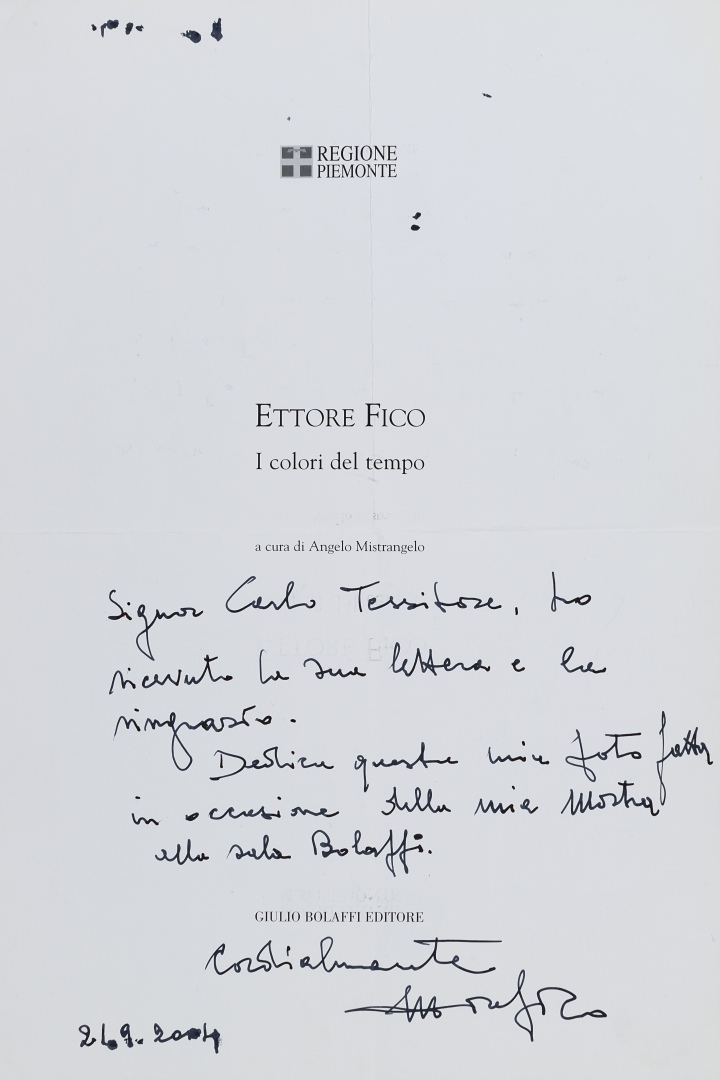 REGIONE
PIEMONTE
ETTORE FICO
I colori del tempo
a cura di Angelo Mistrangelo
Signor Carlo Territore, ho
ricevuto la sua lettera e la
ringrazio.
Dedico questa mia foto fatta
in occasione della mia Mostra
alla sala Bolaffi.
GIULIO BOLAFFI EDITORE
Cordialmente
Ettore Fico
2004